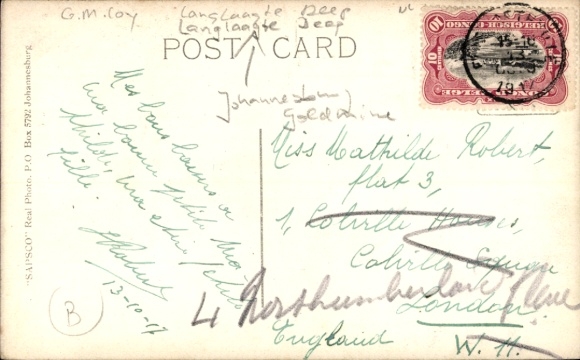 G.M. Coy
Langlaagte Deep
Langlaagte Deep
POST CARD
Johannesburg
Gold mine
BELGISCH-CONGO
10 10
CONGO BELGE
"SAPSCO" Real Photo, P.O. Box 5792 Johannesburg
Mes bons baisers a
ma bonne petite
ma chère petite
fille.
Robert
13-10-17
B
Miss Mathilde Robert,
flat 3,
1, Colville Houses,
Colville Square
London
4 Northumberland Place
England
W. 11.